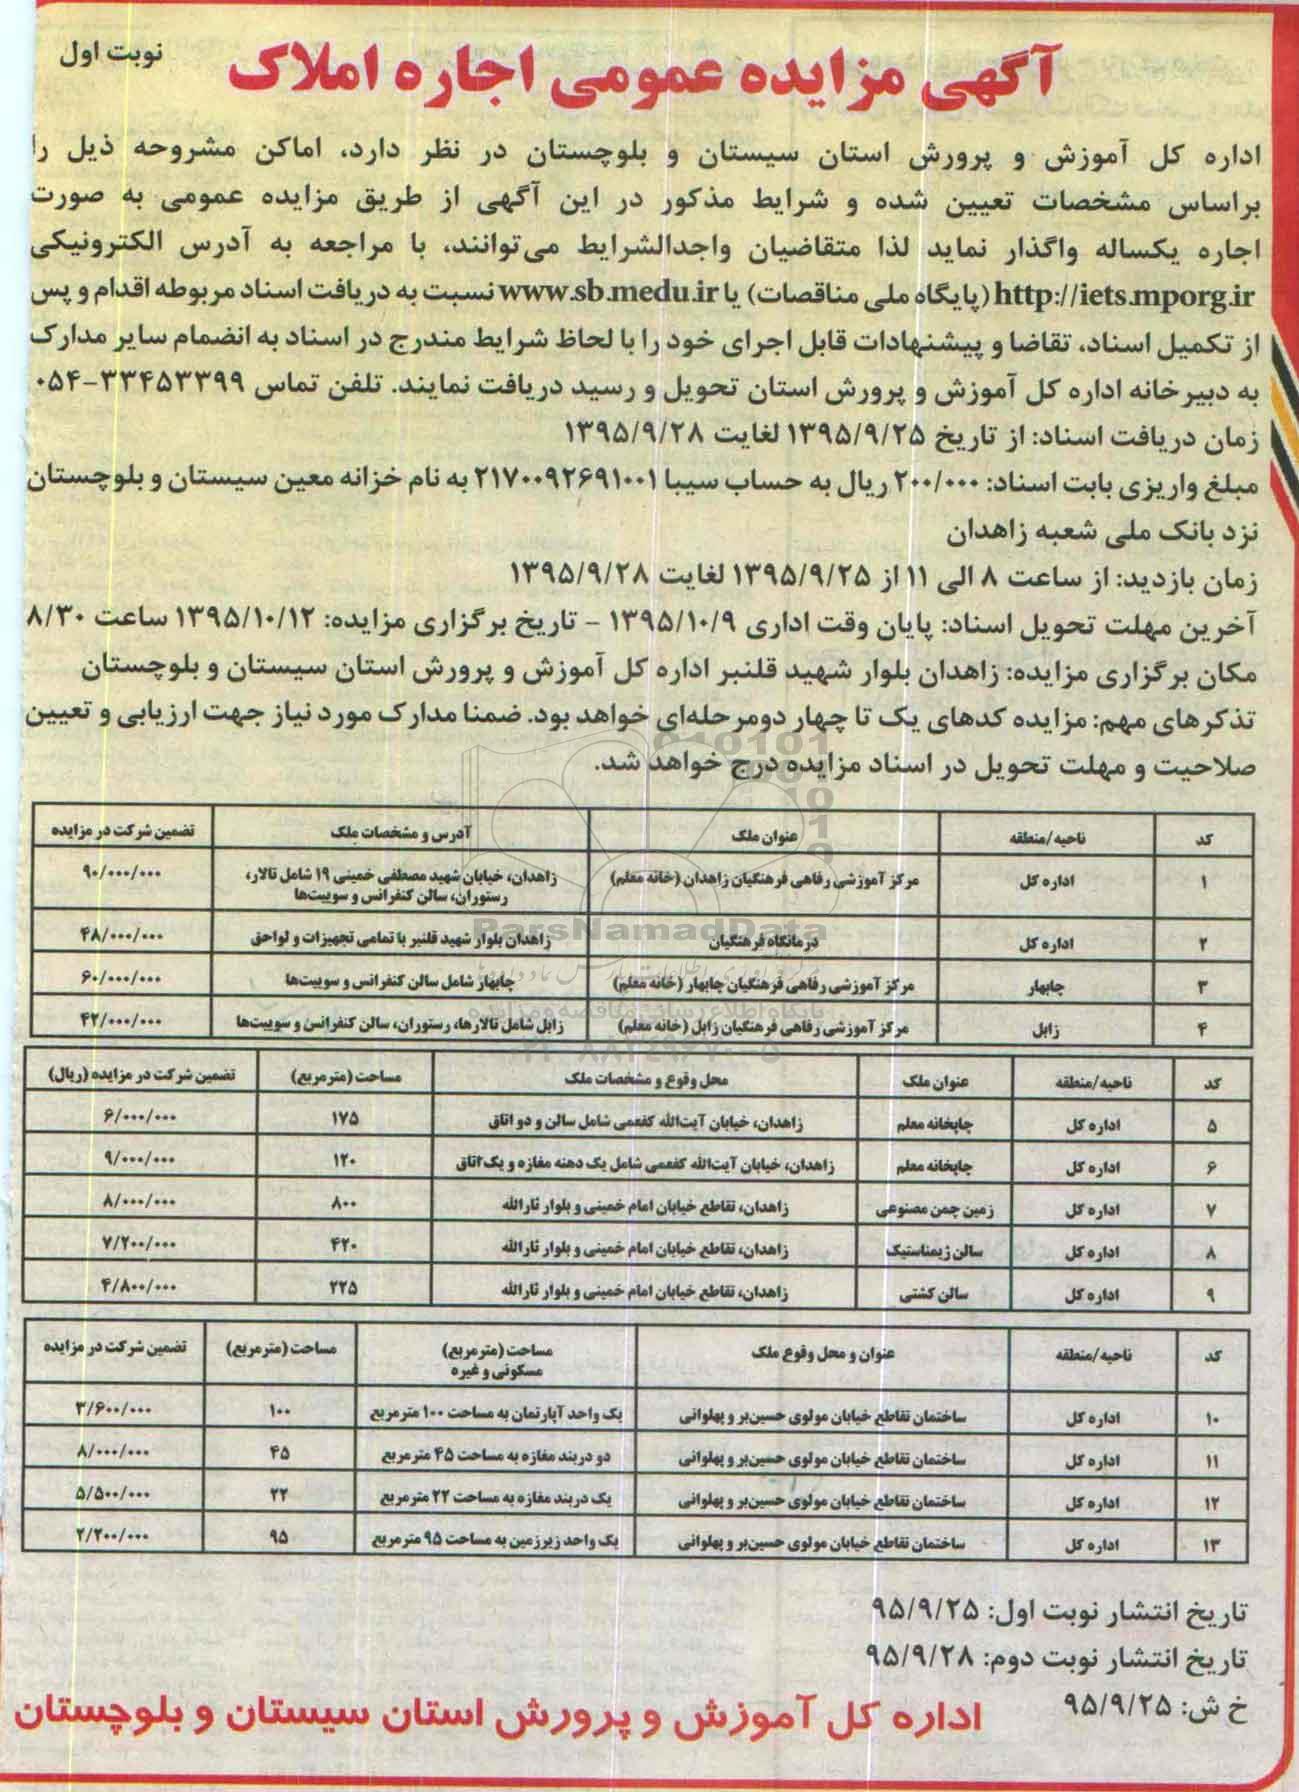 نوبت اول
آگهی مزایده عمومی اجاره املاک
اداره کل آموزش و پرورش استان سیستان و بلوچستان در نظر دارد، اماکن مشروحه ذیل را
براساس مشخصات تعیین شده و شرایط مذکور در این آگهی از طریق مزایده عمومی به صورت
اجاره یکساله واگذار نماید لذا متقاضیان واجدالشرایط می‌توانند، با مراجعه به آدرس الکترونیکی
http://iets.mporg.ir (پایگاه ملی مناقصات) یا www.sb.medu.ir نسبت به دریافت اسناد مربوطه اقدام و پس
از تکمیل اسناد، تقاضا و پیشنهادات قابل اجرای خود را با لحاظ شرایط مندرج در اسناد به انضمام سایر مدارک
به دبیرخانه اداره کل آموزش و پرورش استان تحویل و رسید دریافت نمایند. تلفن تماس ۳۳۴۵۳۳۹۹-۰۵۴
زمان دریافت اسناد: از تاریخ ۱۳۹۵/۹/۲۵ لغایت ۱۳۹۵/۹/۲۸
مبلغ واریزی بابت اسناد: ۲۰۰/۰۰۰ ریال به حساب سیبا ۲۱۷۰۰۹۲۶۹۱۰۰۱ به نام خزانه معین سیستان و بلوچستان
نزد بانک ملی شعبه زاهدان
زمان بازدید: از ساعت ۸ الی ۱۱ از ۱۳۹۵/۹/۲۵ لغایت ۱۳۹۵/۹/۲۸
آخرین مهلت تحویل اسناد: پایان وقت اداری ۱۳۹۵/۱۰/۹ - تاریخ برگزاری مزایده: ۱۳۹۵/۱۰/۱۲ ساعت ۸/۳۰
مکان برگزاری مزایده: زاهدان بلوار شهید قلنبر اداره کل آموزش و پرورش استان سیستان و بلوچستان
تذکرهای مهم: مزایده کدهای یک تا چهار دومرحله‌ای خواهد بود. ضمنا مدارک مورد نیاز جهت ارزیابی و تعیین
صلاحیت و مهلت تحویل در اسناد مزایده درج خواهد شد.
کد ناحیه/منطقه عنوان ملک آدرس و مشخصات ملک تضمین شرکت در مزایده
۱ اداره کل مرکز آموزشی رفاهی فرهنگیان زاهدان (خانه معلم) زاهدان، خیابان شهید مصطفی خمینی ۱۹ شامل تالار، ۹۰/۰۰۰/۰۰۰
رستوران، سالن کنفرانس و سوییت‌ها
۲ اداره کل درمانگاه فرهنگیان زاهدان بلوار شهید قلنبر با تمامی تجهیزات و لواحق ۴۸/۰۰۰/۰۰۰
۳ چابهار مرکز آموزشی رفاهی فرهنگیان چابهار (خانه معلم) چابهار شامل سالن کنفرانس و سوییت‌ها ۶۰/۰۰۰/۰۰۰
۴ زابل مرکز آموزشی رفاهی فرهنگیان زابل (خانه معلم) زابل شامل تالارها، رستوران، سالن کنفرانس و سوییت‌ها ۴۲/۰۰۰/۰۰۰
ParsNamadData
پایگاه اطلاع رسانی مناقصه و مزایده
کد ناحیه/منطقه عنوان ملک محل وقوع و مشخصات ملک مساحت (مترمربع) تضمین شرکت در مزایده (ریال)
۵ اداره کل چاپخانه معلم زاهدان، خیابان آیت‌الله کفعمی شامل سالن و دو اتاق ۱۷۵ ۶/۰۰۰/۰۰۰
۶ اداره کل چاپخانه معلم زاهدان، خیابان آیت‌الله کفعمی شامل یک دهنه مغازه و یک اتاق ۱۲۰ ۹/۰۰۰/۰۰۰
۷ اداره کل زمین چمن مصنوعی زاهدان، تقاطع خیابان امام خمینی و بلوار ثارالله ۸۰۰ ۸/۰۰۰/۰۰۰
۸ اداره کل سالن ژیمناستیک زاهدان، تقاطع خیابان امام خمینی و بلوار ثارالله ۴۲۰ ۷/۲۰۰/۰۰۰
۹ اداره کل سالن کشتی زاهدان، تقاطع خیابان امام خمینی و بلوار ثارالله ۲۲۵ ۴/۸۰۰/۰۰۰
کد ناحیه/منطقه عنوان و محل وقوع ملک مساحت (مترمربع) مساحت (مترمربع) تضمین شرکت در مزایده
مسکونی و غیره
۱۰ اداره کل ساختمان تقاطع خیابان مولوی حسین‌بر و پهلوانی یک واحد آپارتمان به مساحت ۱۰۰ مترمربع ۱۰۰ ۳/۶۰۰/۰۰۰
۱۱ اداره کل ساختمان تقاطع خیابان مولوی حسین‌بر و پهلوانی دو دربند مغازه به مساحت ۴۵ مترمربع ۴۵ ۸/۰۰۰/۰۰۰
۱۲ اداره کل ساختمان تقاطع خیابان مولوی حسین‌بر و پهلوانی یک دربند مغازه به مساحت ۲۲ مترمربع ۲۲ ۵/۵۰۰/۰۰۰
۱۳ اداره کل ساختمان تقاطع خیابان مولوی حسین‌بر و پهلوانی یک واحد زیرزمین به مساحت ۹۵ مترمربع ۹۵ ۲/۲۰۰/۰۰۰
تاریخ انتشار نوبت اول: ۹۵/۹/۲۵
تاریخ انتشار نوبت دوم: ۹۵/۹/۲۸
خ ش: ۹۵/۹/۲۵
اداره کل آموزش و پرورش استان سیستان و بلوچستان